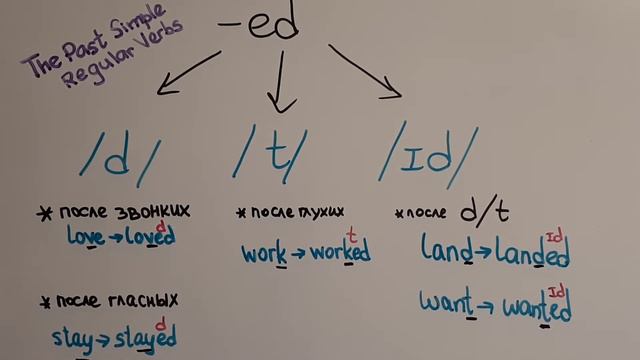 The Past Simple
Regular Verbs
-ed
/d/
* после звонких
love → loved
d
* после гласных
stay → stayed
d
/t/
* после глухих
work → worked
t
/ɪd/
* после d/t
land → landed
ɪd
want → wanted
ɪd